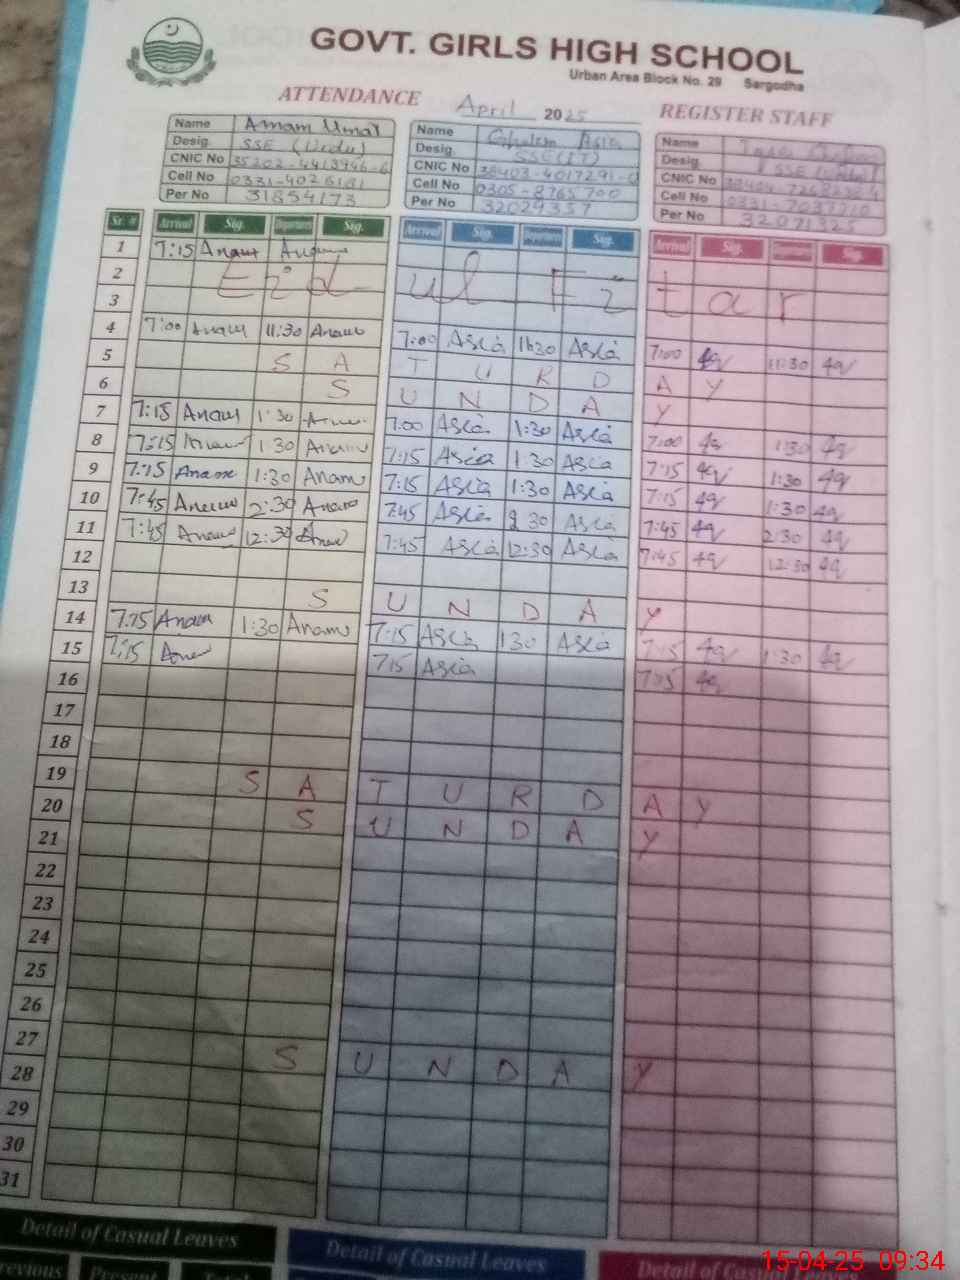 GOVT. GIRLS HIGH SCHOOL
Urban Area Block No. 29 Sargodha
ATTENDANCE April 2025 REGISTER STAFF
Name Anam Umar
Desig. SSE (Urdu)
CNIC No 35202-4413946-6
Cell No 0331-4026181
Per No 31854173
Name Asia
Desig. SSE(IT)
CNIC No 38403-4017291-0
Cell No 0305-8765700
Per No 32029357
Name
Desig. SSE
CNIC No
Cell No 0331-7037710
Per No 32071325
Sr. # Arrival Sig. Departure Sig. Arrival Sig. Departure Sig. Arrival Sig. Departure Sig.
1 7:15 Anam Anam
2 Eid ul Fitar
3
4 7:00 Anam 11:30 Anam 7:00 Asia 11:30 Asia 7:00 11:30
5 S A T U R D A Y
6 S U N D A Y
7 7:15 Anam 1:30 Anam 7:00 Asia 1:30 Asia 7:00 1:30
8 7:15 Anam 1:30 Anam 7:15 Asia 1:30 Asia 7:15 1:30
9 7:15 Anam 1:30 Anam 7:15 Asia 1:30 Asia 7:15 1:30
10 7:45 Anam 2:30 Anam 7:45 Asia 2:30 Asia 7:45 2:30
11 7:45 Anam 12:30 Anam 7:45 Asia 12:30 Asia 7:45 12:30
12
13 S U N D A Y
14 7:15 Anam 1:30 Anam 7:15 Asia 1:30 Asia 7:15 1:30
15 7:15 Anam 7:15 Asia 7:15
16
17
18
19 S A T U R D A Y
20 S U N D A Y
21
22
23
24
25
26
27 S U N D A Y
28
29
30
31
Detail of Casual Leaves Detail of Casual Leaves Detail of Casual
Previous Present
15-04-25 09:34